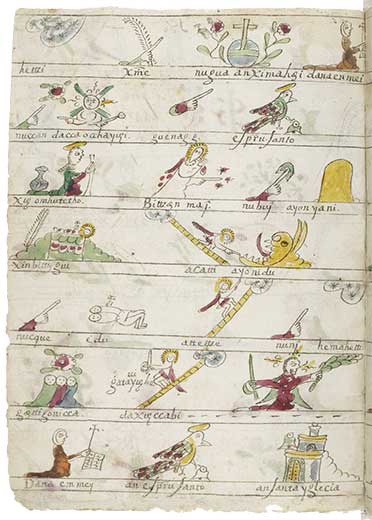 hetzi xm̃e nugua anximahgi danaenmei
nuccan daccaocchayigi guenag e espru santo
xigomhutetho. Bittzgn mas. nubuy ayonyani
xinbittzgui acatti ayonidu
nucque e du attetze nunj hemahetti
ui
gatayugh
gattzonicca daxgccabi
Dana enmey an espru santo ansanta yglecia